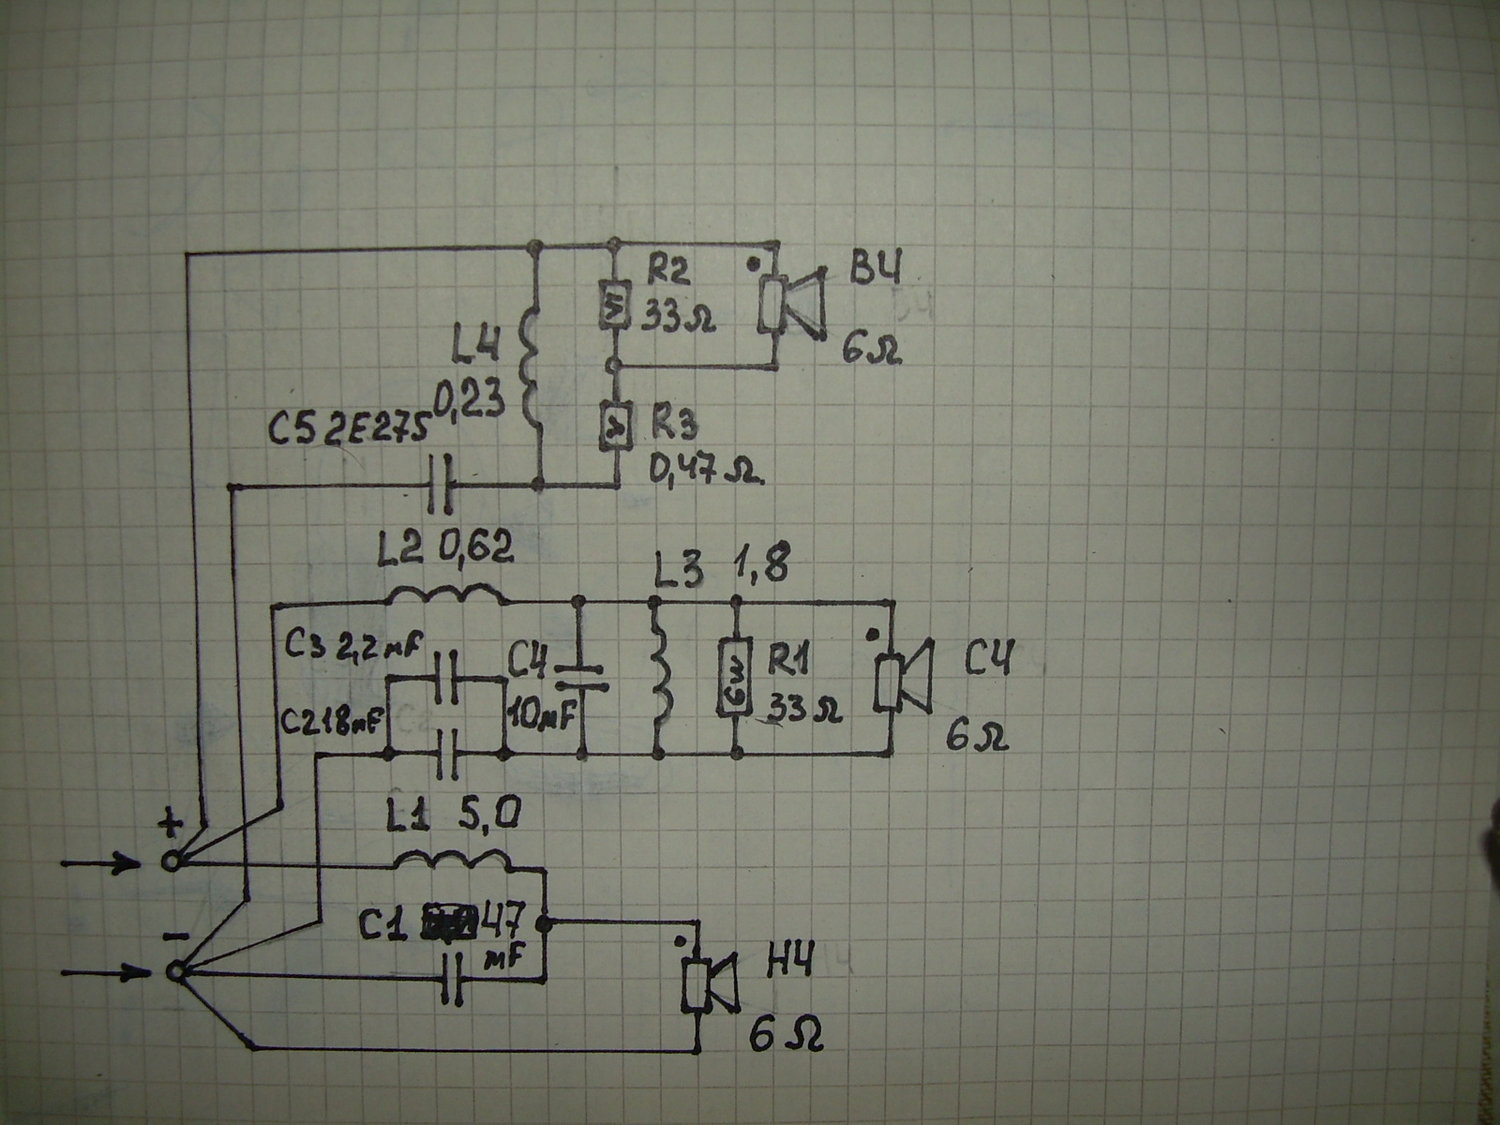 R2
33Ω
ВЧ
6Ω
L4
0,23
C5 2E275
R3
0,47Ω
L2 0,62
L3 1,8
C3 2,2мF
C2 18мF
C4
10мF
6w
R1
33Ω
СЧ
6Ω
L1 5,0
+
C1 47
мF
-
НЧ
6Ω